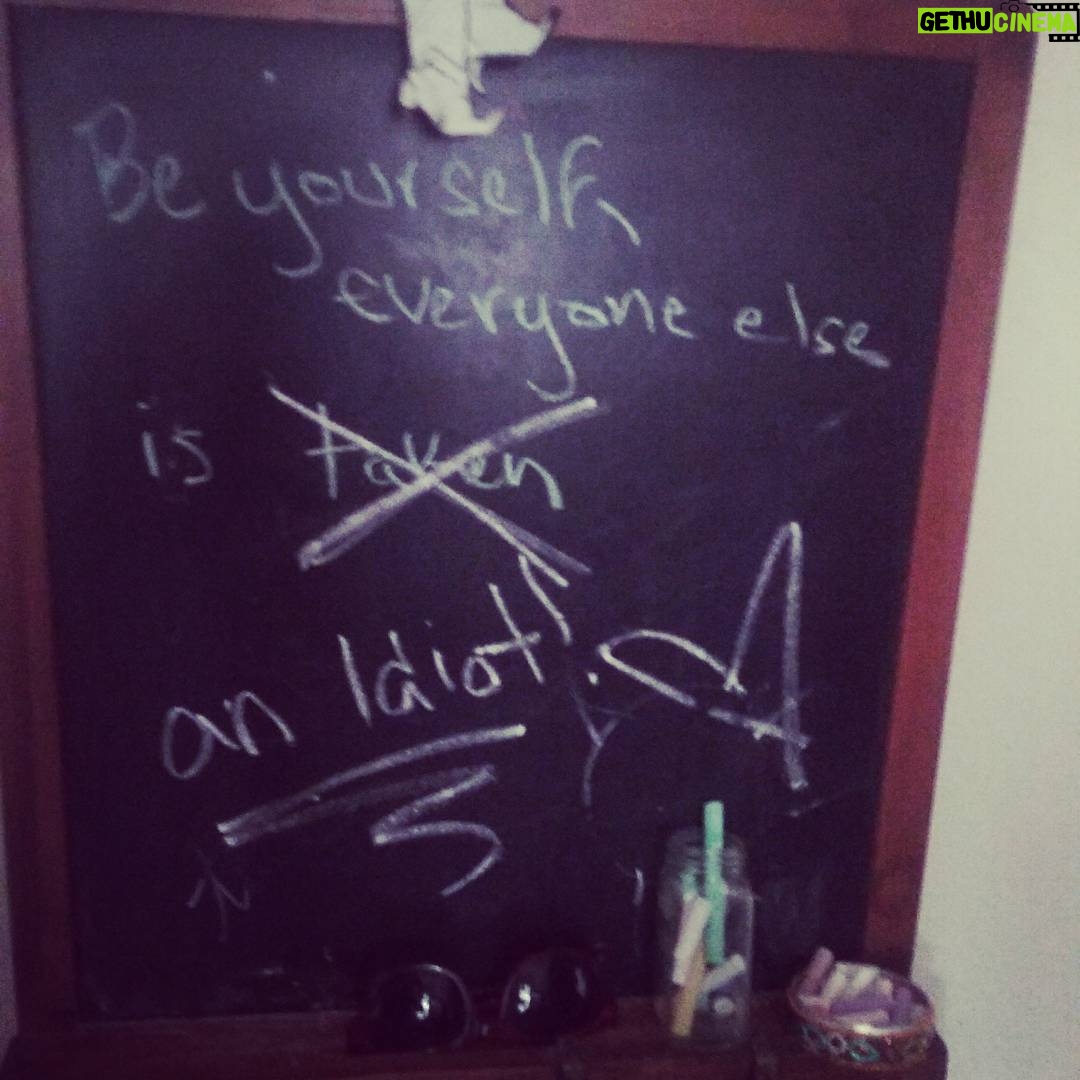 GETHUCINEMA
Be yourself,
everyone else
is taken
an Idiot!